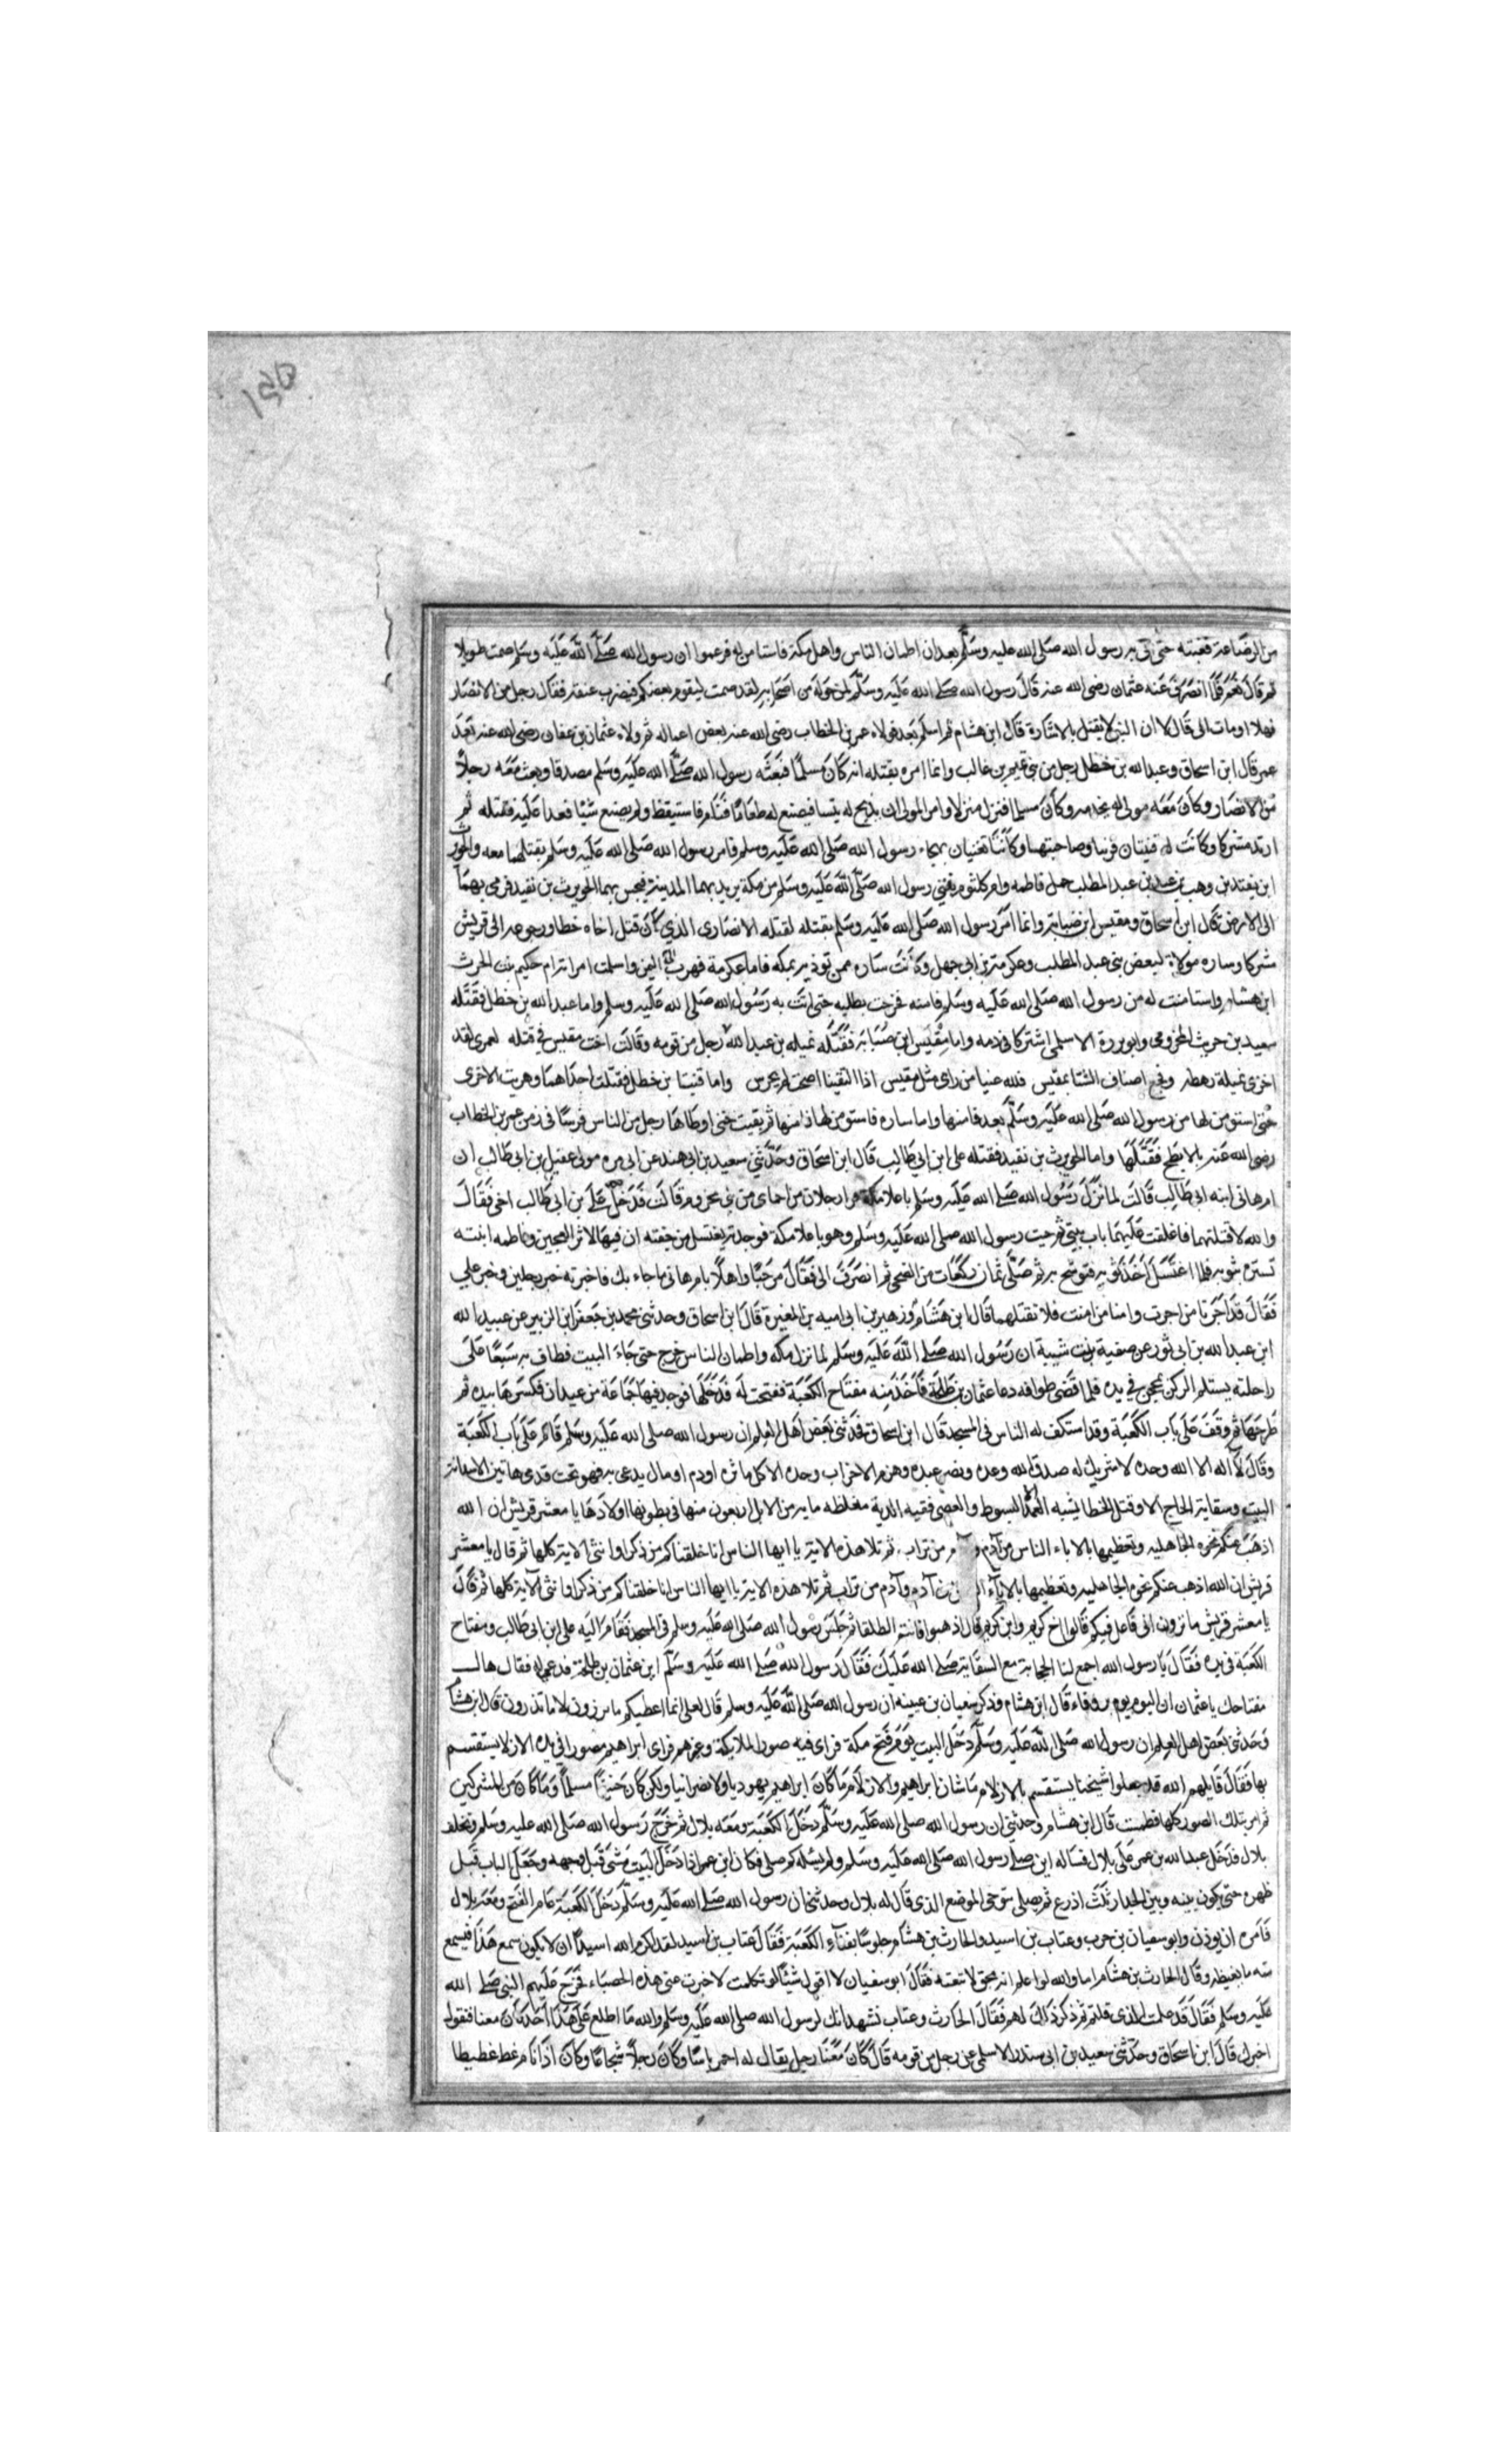 من الرضاعة فغيبته حتى اتى به رسول الله صلى الله عليه وسلم بعد ان اطمان الناس واهل مكة فاستامن له فزعموا ان رسول الله صلى الله عليه وسلم صمت طويلا
ثم قال نعم فلما انصرف عنه عثمان رضى الله عنه قال رسول الله صلى الله عليه وسلم لمن حوله من اصحابه لقد صمت ليقوم بعضكم فيضرب عنقه فقال رجل من الانصار
فهلا اومات الى قال لا ان النبى لا يقتل بالاشارة قال ابن هشام ثم اسلم بعد فولاه عمر بن الخطاب رضى الله عنه بعض اعماله ثم ولاه عثمان بن عفان رضى الله عنه بعد
عمر قال ابن اسحاق وعبد الله بن خطل رجل من بنى تميم بن غالب وانما امره بقتله انه كان مسلما فبعثه رسول الله صلى الله عليه وسلم مصدقا وبعث معه رجلا
من الانصار وكان معه مولى له يخدمه وكان مسلما فنزل منزلا وامر المولى ان يذبح له تيسا فيصنع له طعاما فنام فاستيقظ ولم يصنع شيئا فعدا عليه فقتله ثم
ارتد مشركا وكانت له قينتان فرتنا وصاحبتها وكانتا تغنيان بهجاء رسول الله صلى الله عليه وسلم فامر رسول الله صلى الله عليه وسلم بقتلهما معه والحويرث
ابن نقيد بن وهب بن عبد بن عبد المطلب حمل فاطمه وام كلثوم بنتي رسول الله صلى الله عليه وسلم من مكة يريد بهما المدينة فنخس بهما الحويرث بن نقيد فرمى بهما
الى الارض قال ابن اسحاق ومقيس ابن ضبابة وانما امر رسول الله صلى الله عليه وسلم بقتله لقتله الانصارى الذي كان قتل اخاه خطا ورجوعه الى قريش
مشركا وساره مولاة لبعض بنى عبد المطلب وعكرمة بن ابى جهل وكانت ساره ممن توذيه بمكه فاما عكرمة فهرب الى اليمن واسلمت امراته ام حكيم بنت الحرث
ابن هشام واستامنت له من رسول الله صلى الله عليه وسلم فامنه فخرجت بطلبه حتى اتت به رسول الله صلى الله عليه وسلم واما عبد الله بن خطل فقتله
سعيد بن حريث المخزومى وابو برزة الاسلمى اشتركا فى دمه واما مقيس ابن ضبابة فقتله نميله بن عبد الله رجل من قومه وقالت اخت مقيس في قتله لعمرى لقد
اخزى نميلة رهطه وفجع اصناف الشتا بمقيس فلله عنيا من راى مثل مقيس اذا النفسا اصحت لم تخرس واما قينتا بن خطل فقتلت احداهما وهربت الاخرى
حتى استومن لها من رسول الله صلى الله عليه وسلم بعد فامنها واما ساره فاستومن لها فامنها ثم بقيت حتى اوطاها رجل من الناس فرسا فى زمن عمر بن الخطاب
رضى الله عنه بالابطح فقتلها واما الحويرث بن نقيد فقتله على ابن ابي طالب قال ابن اسحاق وحدثني سعيد بن ابى هند عن ابى مره مولى عقيل بن ابى طالب ان
ام هانى ابنه ابى طالب قالت لما نزل رسول الله صلى الله عليه وسلم باعلا مكة فر الى رجلان من احماى من بنى مخزوم قالت فدخل على على بن ابى طالب اخى فقال
والله لاقتلنهما فاغلقت عليهما باب بيتى ثم جيت رسول الله صلى الله عليه وسلم وهو باعلا مكة فوجدته يغتسل من جفنه ان فيها لاثر العجين وفاطمه ابنته
تستره بثوبه فلما اغتسل اخذ ثوبه فتوشح به ثم صلى ثمان ركعات من الضحى ثم انصرف الى فقال مرحبا واهلا بام هانى ما جاء بك فاخبرته خبر الرجلين وخبر على
فقال قد اجرنا من اجرت وامنا من امنت فلا تقتلهما قال ابن هشام وزهير بن ابى اميه بن المغيرة قال ابن اسحاق وحدثنى محمد بن جعفر ابن الزبير عن عبيد الله
ابن عبد الله بن ابى ثور عن صفية بنت شيبة ان رسول الله صلى الله عليه وسلم لما نزل مكه واطمان الناس خرج حتى جاء البيت فطاف به سبعا على
راحلته يستلم الركن بمحجن في يده فلما قضى طوافه دعا عثمان بن طلحة فاخذ منه مفتاح الكعبة ففتحت له فدخلها فوجد فيها حمامة من عيدان فكسرها بيده ثم
طرحها ثم وقف على باب الكعبة وقد استكف له الناس فى المسجد قال ابن اسحاق فحدثنى بعض اهل العلم ان رسول الله صلى الله عليه وسلم قام على باب الكعبة
وقال لا اله الا الله وحده لا شريك له صدق الله وعده ونصر عبده وهزم الاحزاب وحده الا كل ماثره او دم او مال يدعى به فهو تحت قدمى هاتين الا سدانة
البيت وسقاية الحاج الا وقتل الخطا شبه العمد السوط والعصى ففيه الدية مغلظه مايه من الابل اربعون منها فى بطونها اولادها يا معشر قريش ان الله
اذهب عنكم نخوه الجاهليه وتعظيمها بالاباء الناس من آدم و من تراب ثم تلا هذه الاية يا ايها الناس انا خلقناكم من ذكر وانثى الاية كلها ثم قال يا معشر
قريش ان الله اذهب عنكم نخوه الجاهليه وتعظيمها بالاباء من آدم وآدم من تراب ثم تلا هذه الاية يا ايها الناس انا خلقناكم من ذكر وانثى الآية كلها ثم قال
يا معشر قريش ما ترون انى فاعل فيكم قالوا اخ كريم وابن كريم قال اذهبوا فانتم الطلقا ثم جلس رسول الله صلى الله عليه وسلم فى المسجد فقام اليه على ابن ابى طالب ومفتاح
الكعبة فى يده فقال يا رسول الله اجمع لنا الحجابة مع السقاية صلى الله عليك فقال رسول الله صلى الله عليه وسلم اين عثمان بن طلحة فدعى له فقال هاك
مفتاحك يا عثمان ان اليوم يوم بر ووفاء قال ابن هشام وذكر سفيان بن عيينه ان رسول الله صلى الله عليه وسلم قال لعلى انما اعطيكم ما ترزون لا ما تذرون قال ابن هشام
وحدثنى بعض اهل العلم ان رسول الله صلى الله عليه وسلم دخل البيت يوم فتح مكة فراى فيه صور الملايكة وغيرهم فراى ابراهيم مصورا فى يده الازلام يستقسم
بها فقال قاتلهم الله قد جعلوا شيخنا يستقسم بالازلام ما شان ابراهيم والازلام ما كان ابراهيم يهوديا ولا نصرانيا ولكن كان حنيفا مسلما وما كان من المشركين
ثم امر بتلك الصور كلها فطمت قال ابن هشام وحدثنى ان رسول الله صلى الله عليه وسلم دخل الكعبة ومعه بلال ثم خرج رسول الله صلى الله عليه وسلم وتخلف
بلال فدخل عبد الله بن عمر على بلال فساله اين صلى رسول الله صلى الله عليه وسلم ولم يسله كم صلى فكان ابن عمر اذا دخل البيت مشى قبل وجهه وجعل الباب قبل
ظهره حتى يكون بينه وبين الجدار ثلث اذرع ثم يصلى يتوخى الموضع الذى قال له بلال وحدثنى ان رسول الله صلى الله عليه وسلم دخل الكعبة عام الفتح ومعه بلال
فامره ان يوذن وابو سفيان بن حرب وعتاب بن اسيد والحارث بن هشام جلوسا بفناء الكعبة فقال عتاب بن اسيد لقد اكرم الله اسيدا ان لا يكون سمع هذا فيسمع
منه ما يغيظه وقال الحارث بن هشام اما والله لو اعلم انه محق لاتبعته فقال ابو سفيان لا اقول شيئا لو تكلمت لاخبرت عنى هذه الحصباء فخرج عليهم النبى صلى الله
عليه وسلم فقال قد علمت الذى قلتم ثم ذكر ذلك لهم فقال الحارث وعتاب نشهد انك لرسول الله صلى الله عليه وسلم والله ما اطلع على هذا احد كان معنا فنقول
اخبرك قال ابن اسحاق وحدثنى سعيد بن ابى سندر الاسلمى عن رجل من قومه قال كان معنا رجل يقال له احمر باسا وكان رجلا شجاعا وكان اذا نام غط غطيطا